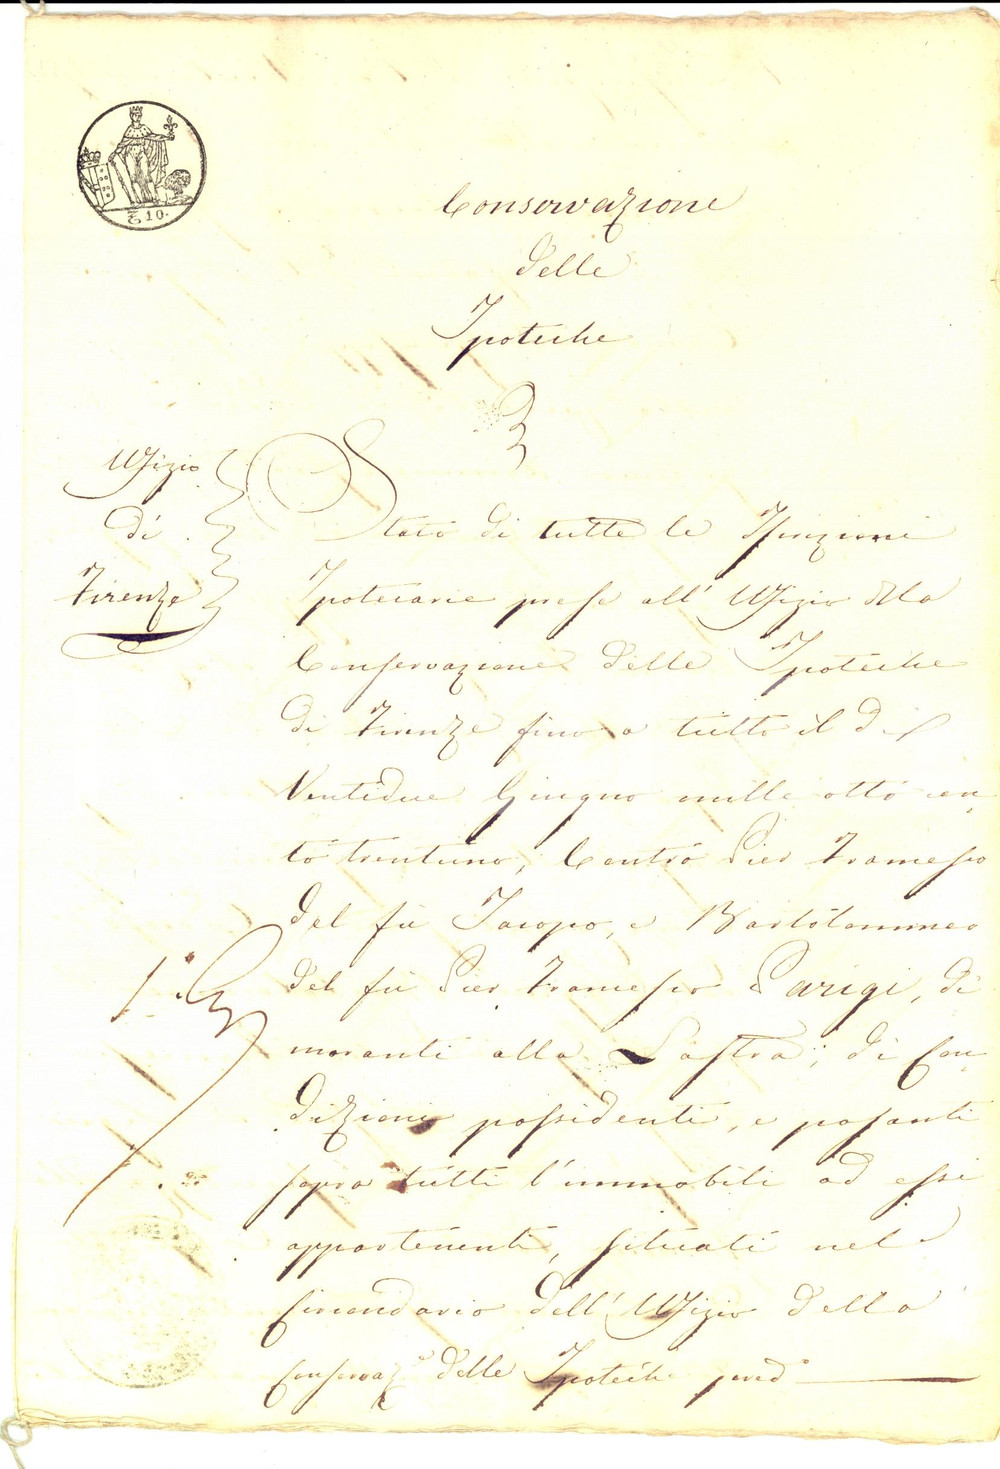 10.
Conservazione
delle
Ipoteche
Ufizio
di
Firenze
Stato di tutte le Iscrizioni
Ipotecarie prese all' Ufizio della
Conservazione delle Ipoteche
di Firenze fino a tutto il dì
Ventidue Giugno mille otto cen-
to trentuno, Contro Pier Francesco
del fu Jacopo, e Bartolommeo
del fu Pier Francesco Parigi, di
moranti alla Lastra, di Con-
dizioni possidenti, e posanti
sopra tutti l'immobili ad essi
appartenenti, situati nel
Circondario dell' Ufizio della
Conservaz.e delle Ipoteche pred.o
1.°